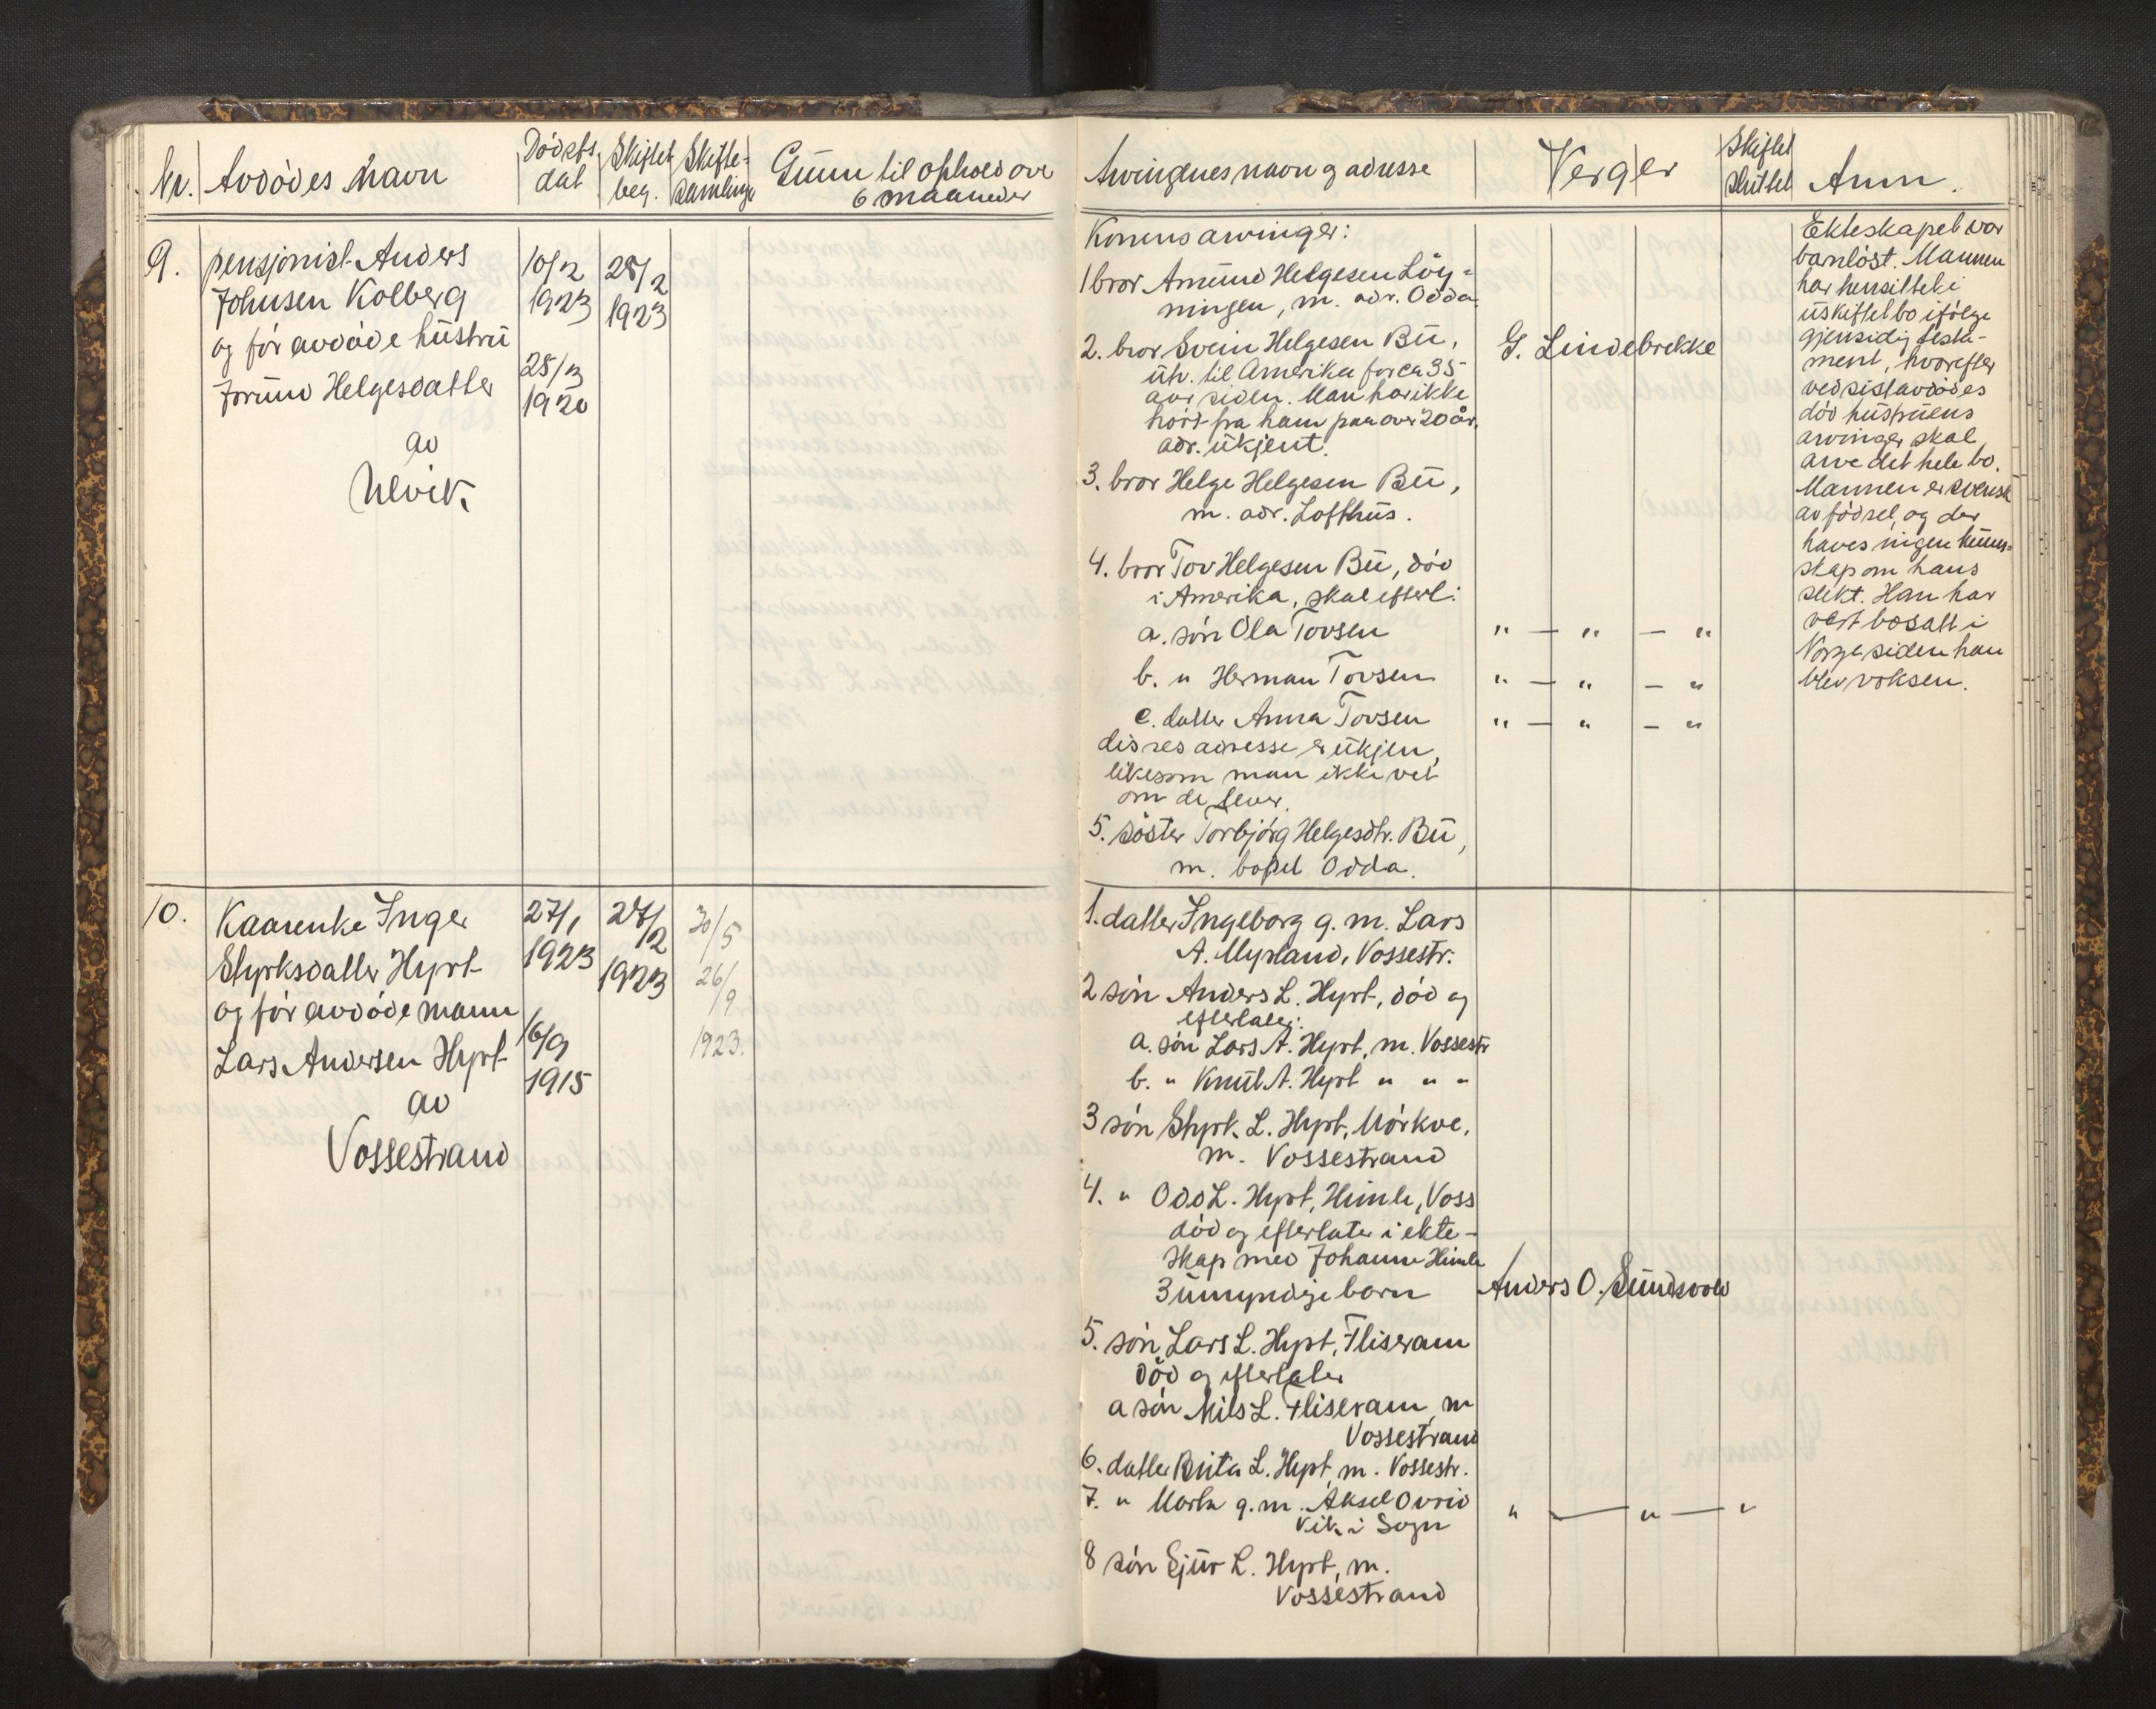 Nr. Avdødes navn Dødsfs dat Skiftet beg. Skifte- samlinge Grunn til ophold over 6 maaneder
9. pensjonist Anders
Johnsen Kolberg
og før avdøde hustru
Jorunn Helgesdatter
av
Ulvik
10/2
1923
25/3
1920
28/2
1923
10. Kaarenke Inger
Styrksdatter Hyrt
og før avdøde mann
Lars Andersen Hyrt
av
Vossestrand
27/1
1923
16/9
1915
27/2
1923
30/5
26/9
1923.
Arvingenes navn og adresse Verger Skiftet sluttet Anm.
Konens arvinger:
1 bror Amund Helgesen Löy-
ningen, m. adr. Odda.
2. bror Svein Helgesen Bu,
utv. til Amerika for ca 35
aar siden. Man har ikke
hørt fra ham paa over 20 år,
adr. ukjent.
3. bror Helge Helgesen Bu,
m. adr. Lofthus.
4. bror Tov Helgesen Bu, død
i Amerika, skal efterl:
a. søn Ola Tovsen
b. " Herman Tovsen
c. datter Anna Tovsen
disses adresse er ukjen,
likesom man ikke vet
om de lever.
5. søster Torbjørg Helgesdtr. Bu,
m. bopel Odda.
G. Lindebrekke
" — " — "
" — " — "
" — " — "
Ekteskapet var
barnløst. Mannen
har hensittet i
uskiftet bo ifølge
gjensidig testa-
ment, hvorefter
ved sistavdødes
død hustruens
arvinger skal
arve det hele bo.
Mannen er svensk
av fødsel, og der
haves ingen kunn-
skap om hans
slekt. Han har
vært bosatt i
Norge siden han
blev voksen.
1. datter Ingeborg g. m. Lars
A. Myrland, Vossestr.
2 søn Anders L. Hyrt, død og
efterlater:
a. søn Lars A. Hyrt, m. Vossestr
b. " Knut A. Hyrt " " "
3 søn Styrk L. Hyrt, Mørkve,
m. Vossestrand
4. " Odd L. Hyrt, Himle, Voss
død og efterlater i ekte-
skap med Johanne Himle
3 umyndige barn
Anders O. Sundsvold
5. søn Lars L. Hyrt, Fliseram
død og efterlater
a søn Nils L. Fliseram, m
Vossestrand
6. datter Brita L. Hyrt, m. Vossestr.
7. " Marta g. m. Aksel Ovrid
Vik i Sogn
" — " — "
8 søn Sjur L. Hyrt, m.
Vossestrand